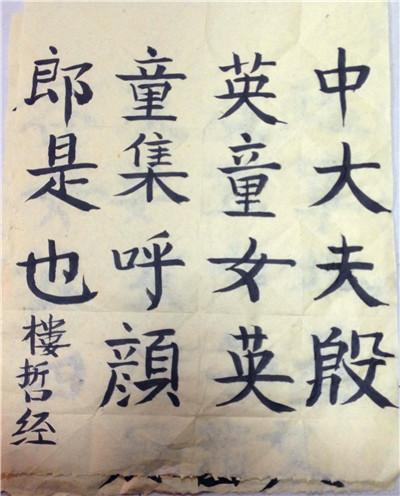 中大夫殷
英童女英
童集呼顔
郎是也
樓哲经